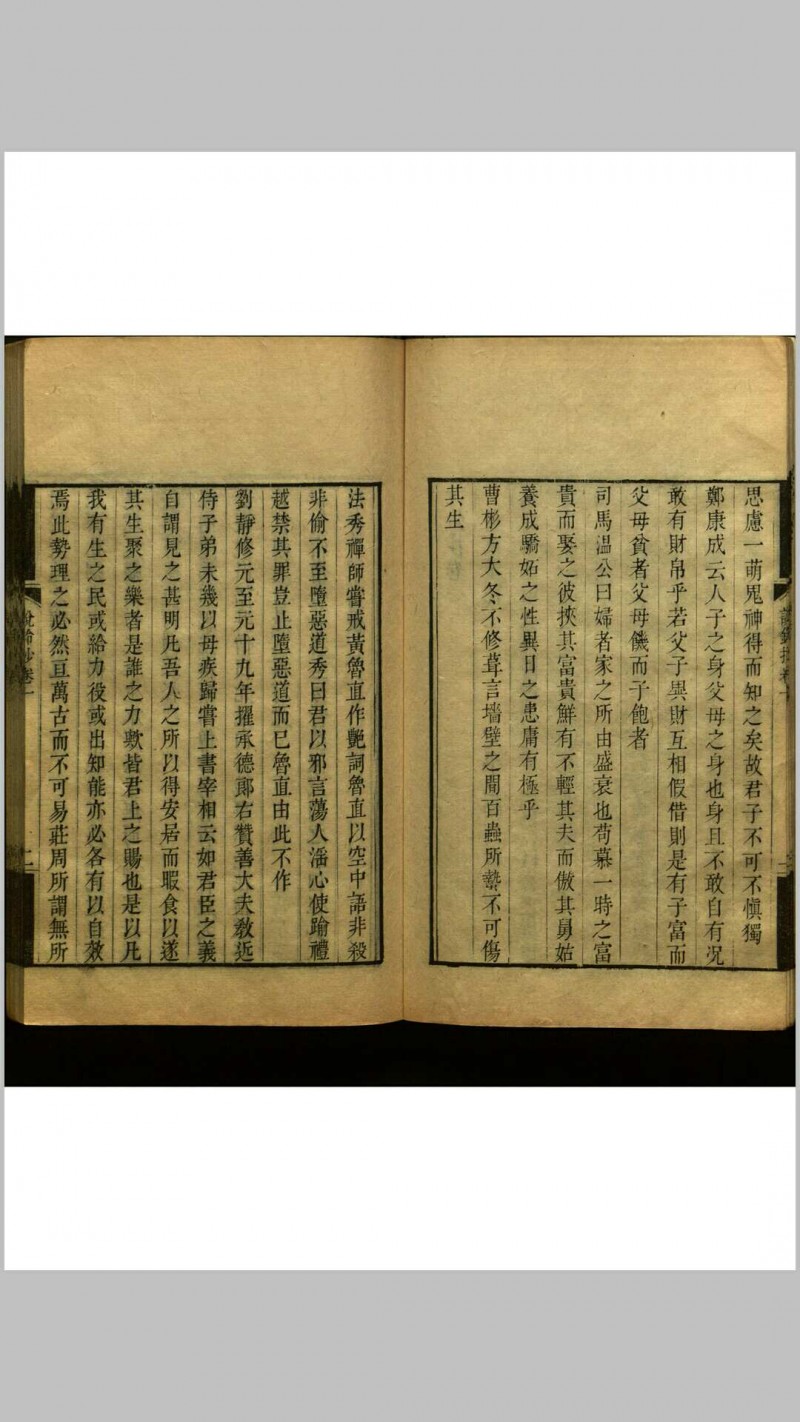 思慮一萌鬼神得而知之矣故君子不可不慎獨
鄭康成云人子之身父母之身也身且不敢自有况
敢有財帛乎若父子異財互相假借則是有子富而
父母貧者父母饑而子飽者
司馬温公曰婦者家之所由盛衰也苟慕一時之富
貴而娶之彼挾其富貴鮮有不輕其夫而傲其舅姑
養成驕妬之性異日之患庸有極乎
曹彬方大冬不修葺言墻壁之間百蟲所蟄不可傷
其生
法秀禪師嘗戒黃魯直作艷詞魯直以空中語非殺
非偷不至墮惡道秀曰君以邪言蕩人淫心使踰禮
越禁其罪豈止墮惡道而已魯直由此不作
劉靜修元至元十九年擢承德郎右贊善大夫教近
侍子弟未幾以母疾歸嘗上書宰相云如君臣之義
自謂見之甚明凡吾人之所以得安居而暇食以遂
其生聚之樂者是誰之力歟皆君上之賜也是以凡
我有生之民或給力役或出知能亦必各有以自效
焉此勢理之必然亘萬古而不可易莊周所謂無所
鈔卷一
二